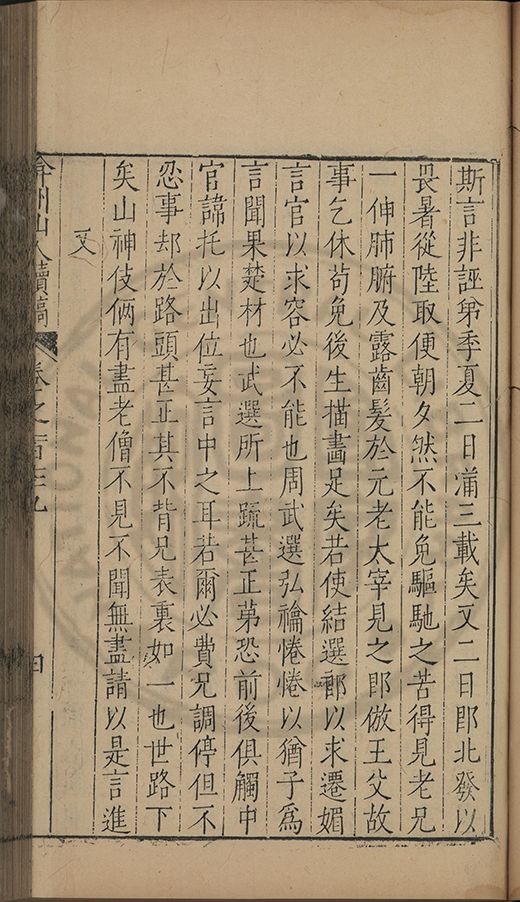 斯言非誣弟季夏二日滿三載矣又二日即北發以
畏暑從陸取便朝夕然不能免驅馳之苦得見老兄
一伸肺腑及露齒髮於元老太宰見之即倣王父故
事乞休茍免後生描畫足矣若使結選郎以求遷媚
言官以求容必不能也周武選弘禴惓惓以猶子爲
言聞果楚材也武選所上疏甚正苐恐前後俱觸中
官諱托以出位妄言中之耳若爾必費兄調停但不
忍事却於路頭甚正其不背兄表裏如一也世路下
矣山神伎俩有盡老僧不見不聞無盡請以是言進
又
弇州山人續稿
卷之一百